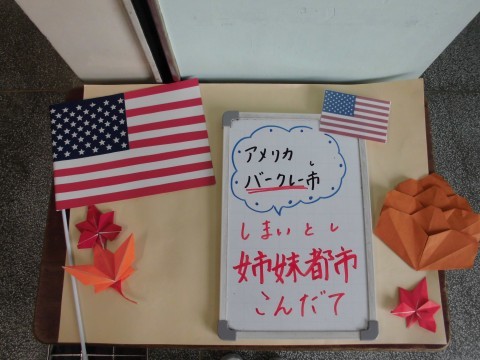 アメリカ
バークレー市
し
しまいとし
姉妹都市
こんだて